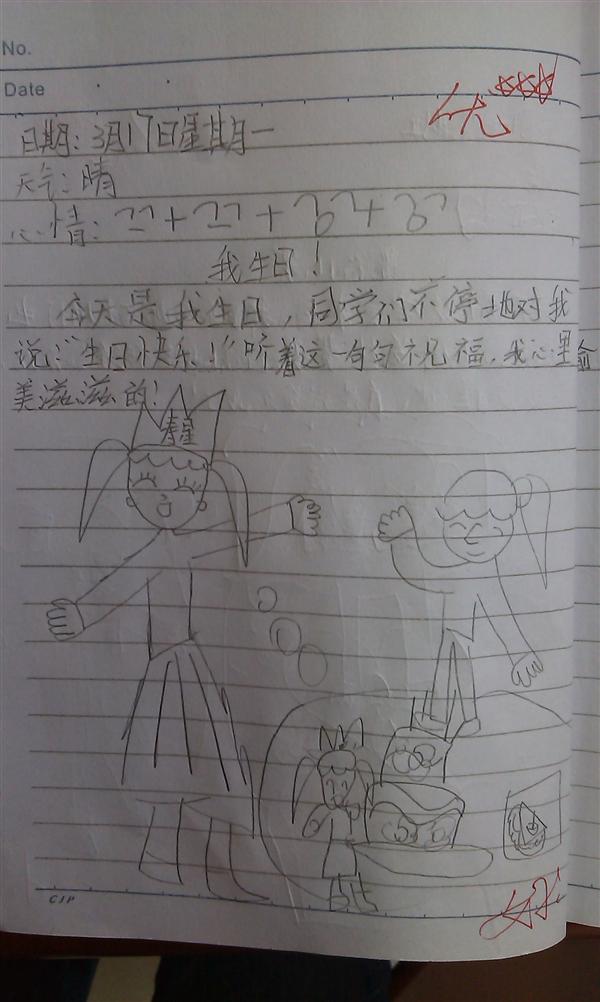 No.
Date
优
日期：3月17日星期一
天气：晴
心情：
我生日！
今天是我生日，同学们不停地对我
说：“生日快乐！”听着这一句句祝福，我心里
美滋滋的！
寿星
CJP
好